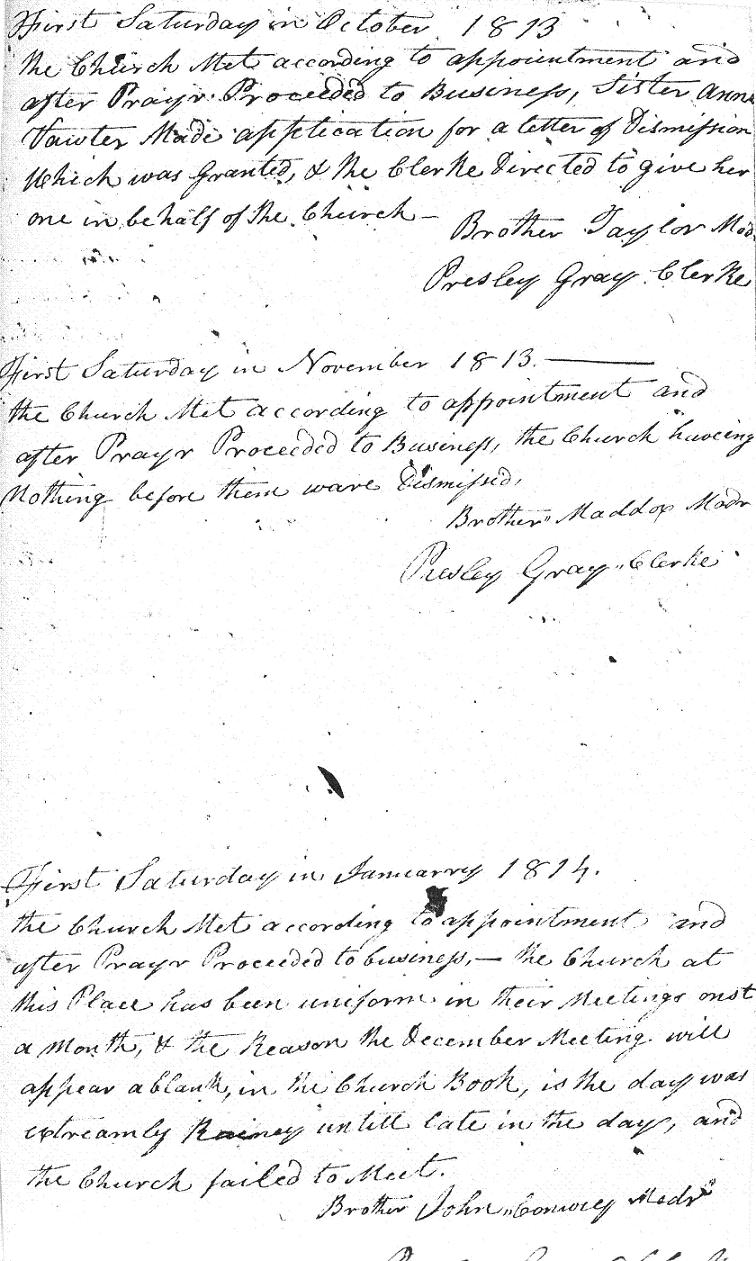 First Saturday in October 1813
the Church Met according to appointment and
after Prayr Proceeded to Business, Sister Anna
Vawter Made application for a letter of Dismission
Which was Granted, & the Clerke Directed to give her
one in behalf of the Church —
Brother Taylor Mod
Presley Gray Clerke
First Saturday in November 1813. ———
the Church Met according to appointment and
after Prayr Proceeded to Business, the Church haveing
Nothing before them ware Dismissed,
Brother Maddox Modr
Presley Gray Clerke
First Saturday in Januarry 1814.
the Church Met according to appointment and
after Prayr Proceeded to business, — the Church at
this Place has been uniform in their Meetings onst
a Month, & the Reason the December Meeting will
appear a blank, in the Church Book, is the day was
extreamly Rainey untill late in the day, and
the Church failed to Meet.
Brother John Conwey Modr